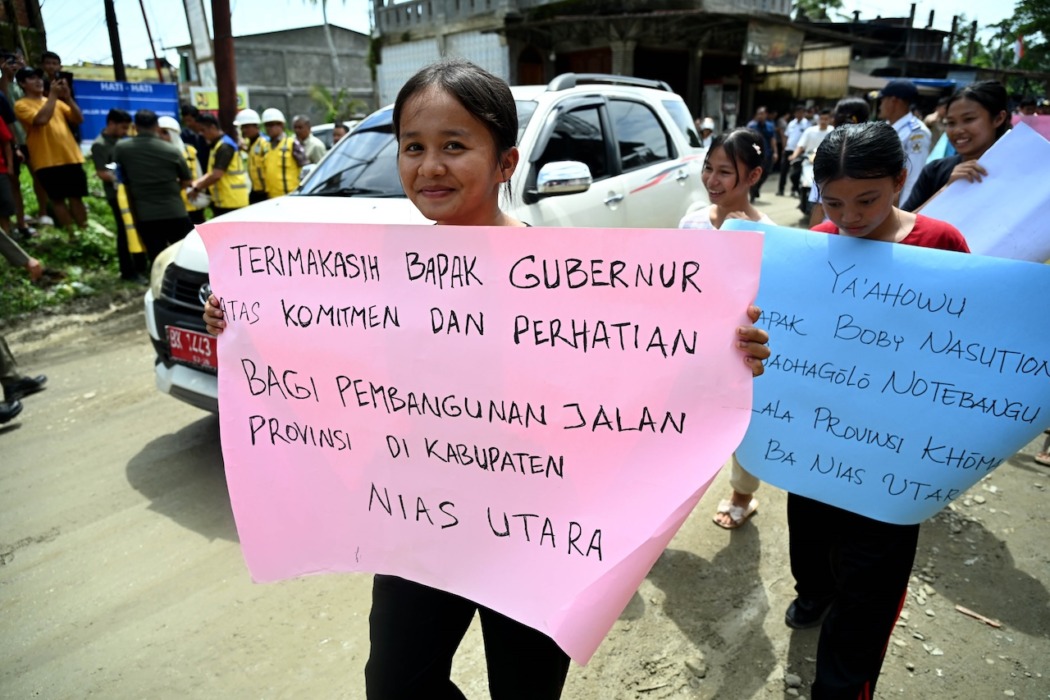 HATI - HATI
TERIMAKASIH BAPAK GUBERNUR
ATAS KOMITMEN DAN PERHATIAN
BAGI PEMBANGUNAN JALAN
PROVINSI DI KABUPATEN
NIAS UTARA
YA'AHOWU
APAK BOBY NASUTION
AOHAGÖLÖ NOTEBANGU
LALA PROVINSI KHÖM
BA NIAS UTAR
BK 1443